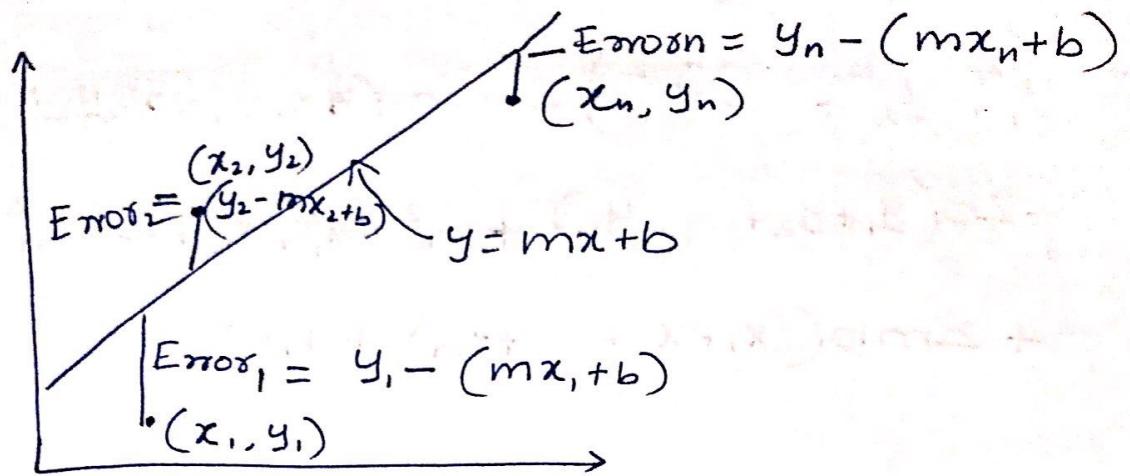 Errorn = yn - (mxn + b)
(xn, yn)
(x2, y2)
Error2 = (y2 - mx2+b)
y = mx+b
Error1 = y1 - (mx1 + b)
(x1, y1)